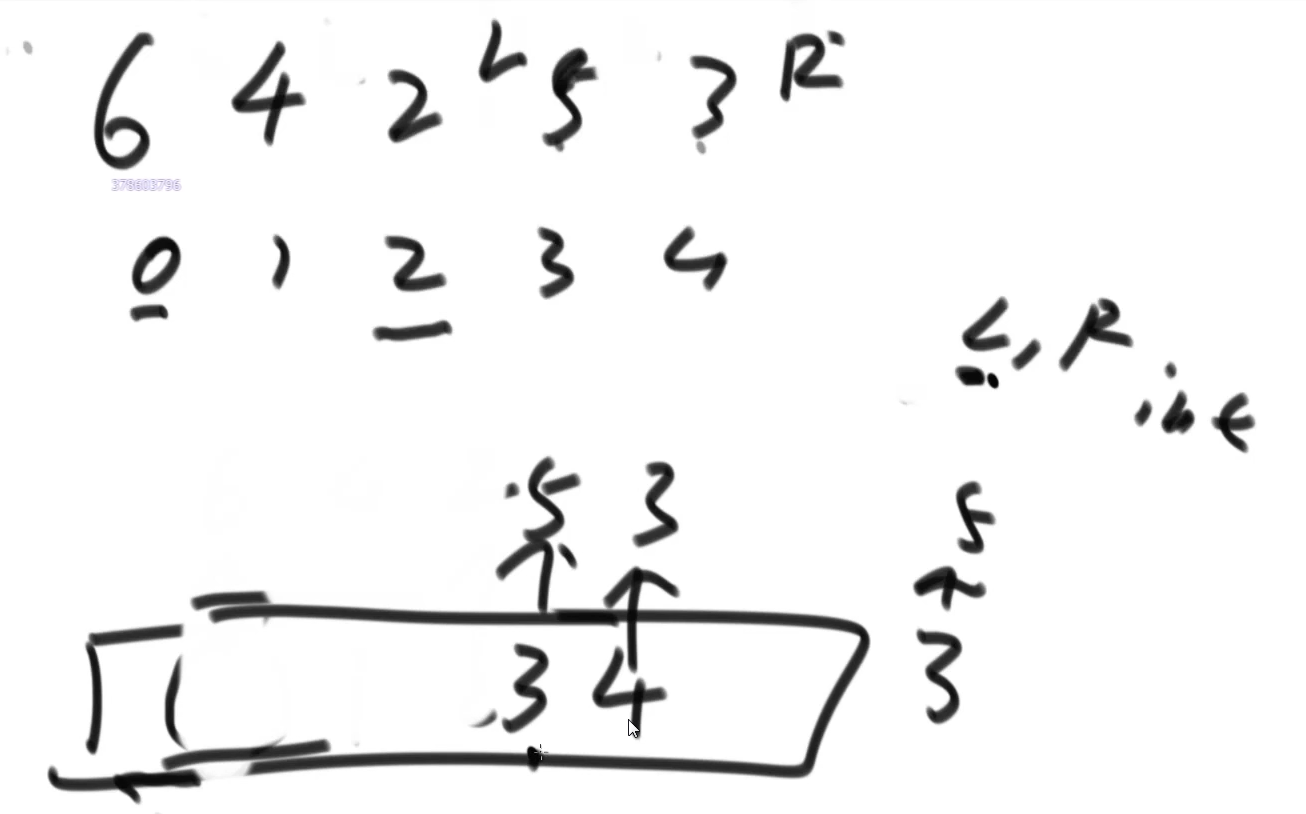 6 4 2 L 5 3 R
378603796
0 1 2 3 4
L, R
int
5 3 5
3 4 3